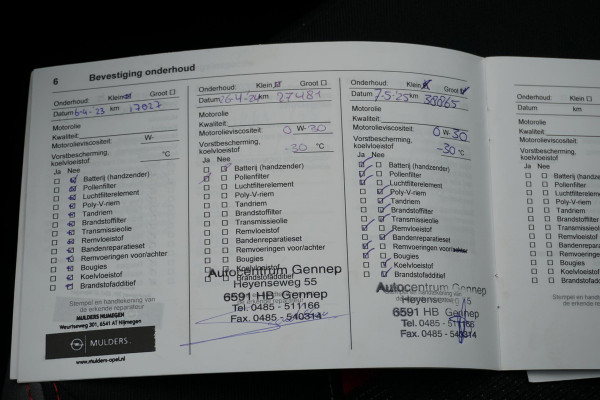 6 Bevestiging onderhoud
Onderhoud: Klein Groot
Datum 6-4-23 km 17027
Motorolie
Kwaliteit:
Motorolieviscositeit: W-
Vorstbescherming, koelvloeistof °C
Ja Nee
Batterij (handzender)
Pollenfilter
Luchtfilterelement
Poly-V-riem
Tandriem
Brandstoffilter
Transmissieolie
Remvloeistof
Bandenreparatieset
Remvoeringen voor/achter
Bougies
Koelvloeistof
Brandstofadditief
Stempel en handtekening van
de erkende reparateur
MULDERS NIJMEGEN
Weurtseweg 301, 6541 AT Nijmegen
MULDERS.
www.mulders-opel.nl
Onderhoud: Klein Groot
Datum 26-4-24 km 27481
Motorolie
Kwaliteit:
Motorolieviscositeit: 0 W-30
Vorstbescherming,
koelvloeistof -30 °C
Ja Nee
Batterij (handzender)
Pollenfilter
Luchtfilterelement
Poly-V-riem
Tandriem
Brandstoffilter
Transmissieolie
Remvloeistof
Bandenreparatieset
Remvoeringen voor/achter
Bougies
Koelvloeistof
Brandstofadditief
Autocentrum Gennep
Heyenseweg 55
6591 HB Gennep
Tel. 0485 - 511166
Fax. 0485 - 540314
Onderhoud: Klein Groot
Datum 7-5-25 km 38865
Motorolie
Kwaliteit:
Motorolieviscositeit: 0 W-30
Vorstbescherming,
koelvloeistof -30 °C
Ja Nee
Batterij (handzender)
Pollenfilter
Luchtfilterelement
Poly-V-riem
Tandriem
Brandstoffilter
Transmissieolie
Remvloeistof
Bandenreparatieset
Remvoeringen voor/achter
Bougies
Koelvloeistof
Brandstofadditief
Autocentrum Gennep
6591 HB Gennep
Tel. 0485 - 511166
Fax. 0485 - 540314
Onderhoud: Klein
Datum km
Motorolie
Kwaliteit:
Motorolieviscositeit:
Vorstbescherming,
koelvloeistof
Ja Nee
Pollenfilter
Poly-V-riem
Tandriem
Brandstoffilter
Bougies
Koelvloeistof